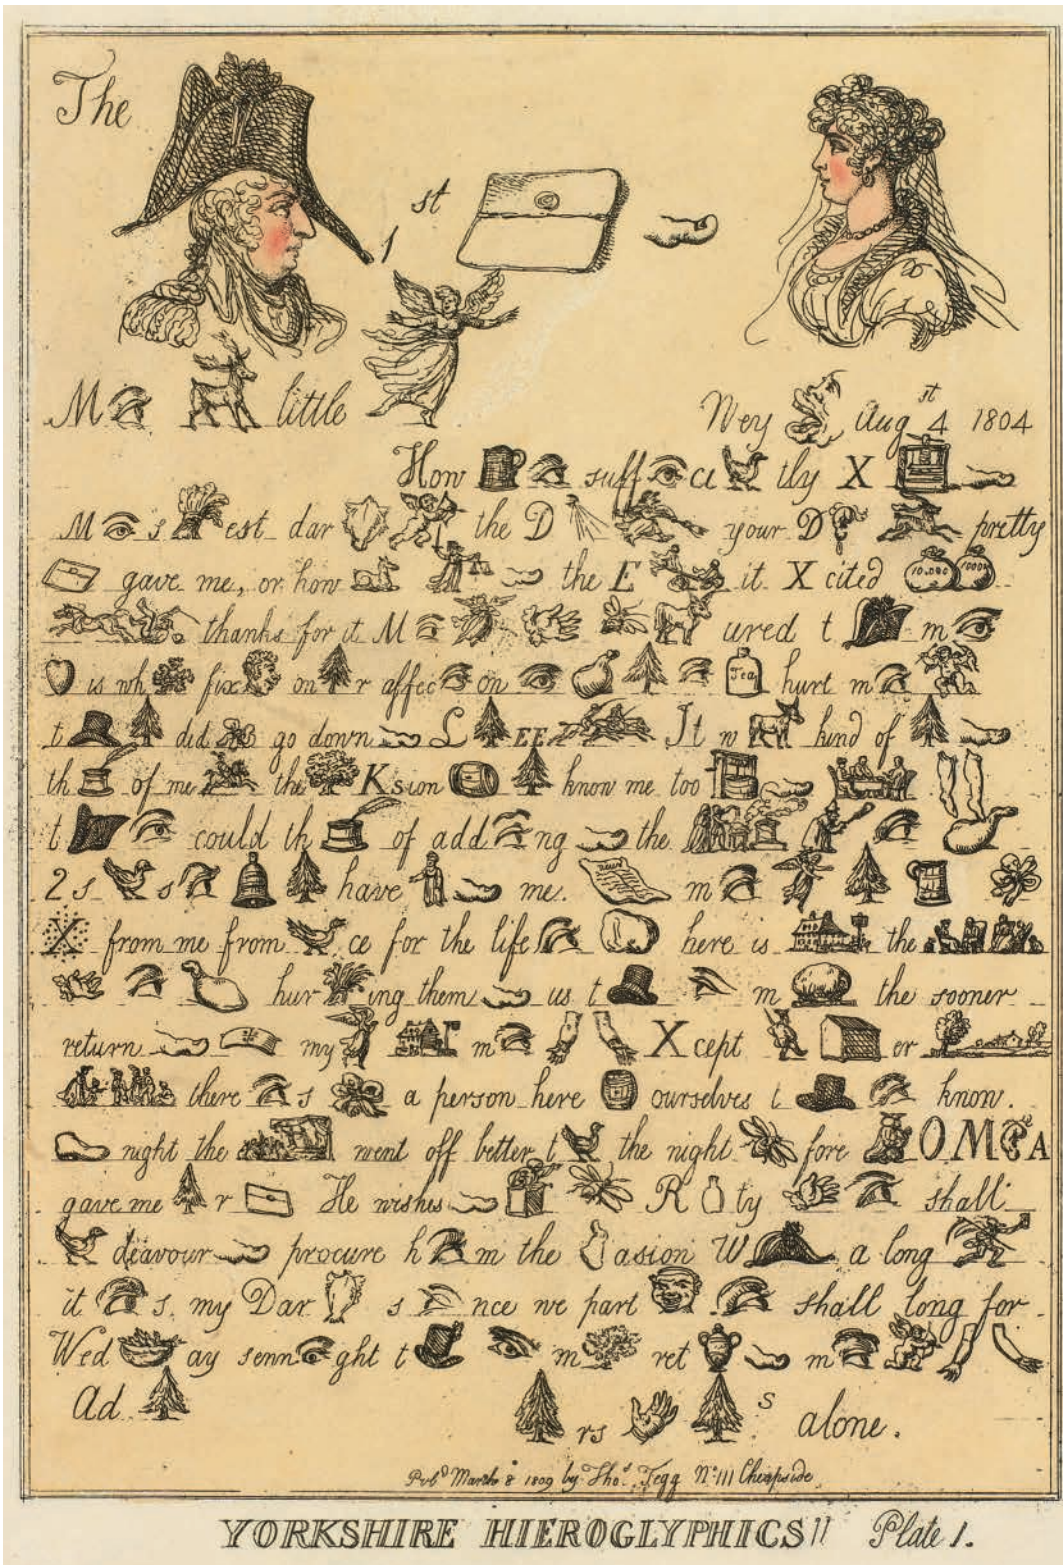 The
1st
M little
Wey Augst 4 1804
How suff ci tly X
M s est dar the D your D pretty
gave me, or how the E it X cited 10,000 1000
thanks for it M ured t m
is wh fix on r affec on Tea hurt m
t did go down L EE It w kind of
th of me the Ksion know me too
t could th of add ng the
2 s s have me. m
X from me from ce for the life here is the
hur ing them us t m the sooner
return my m X cept or
there s a person here ourselves t know.
night the went off better t the night fore OM A
gave me r He wishes R ty shall
deavour procure h m the asion W a long
it s my Dar s nce we part shall long for
Wed ay senn ght t m ret m
Ad
rs s alone.
Pubd March 8 1809 by Thos Tegg No 111 Cheapside
YORKSHIRE HIEROGLYPHICS!! Plate 1.